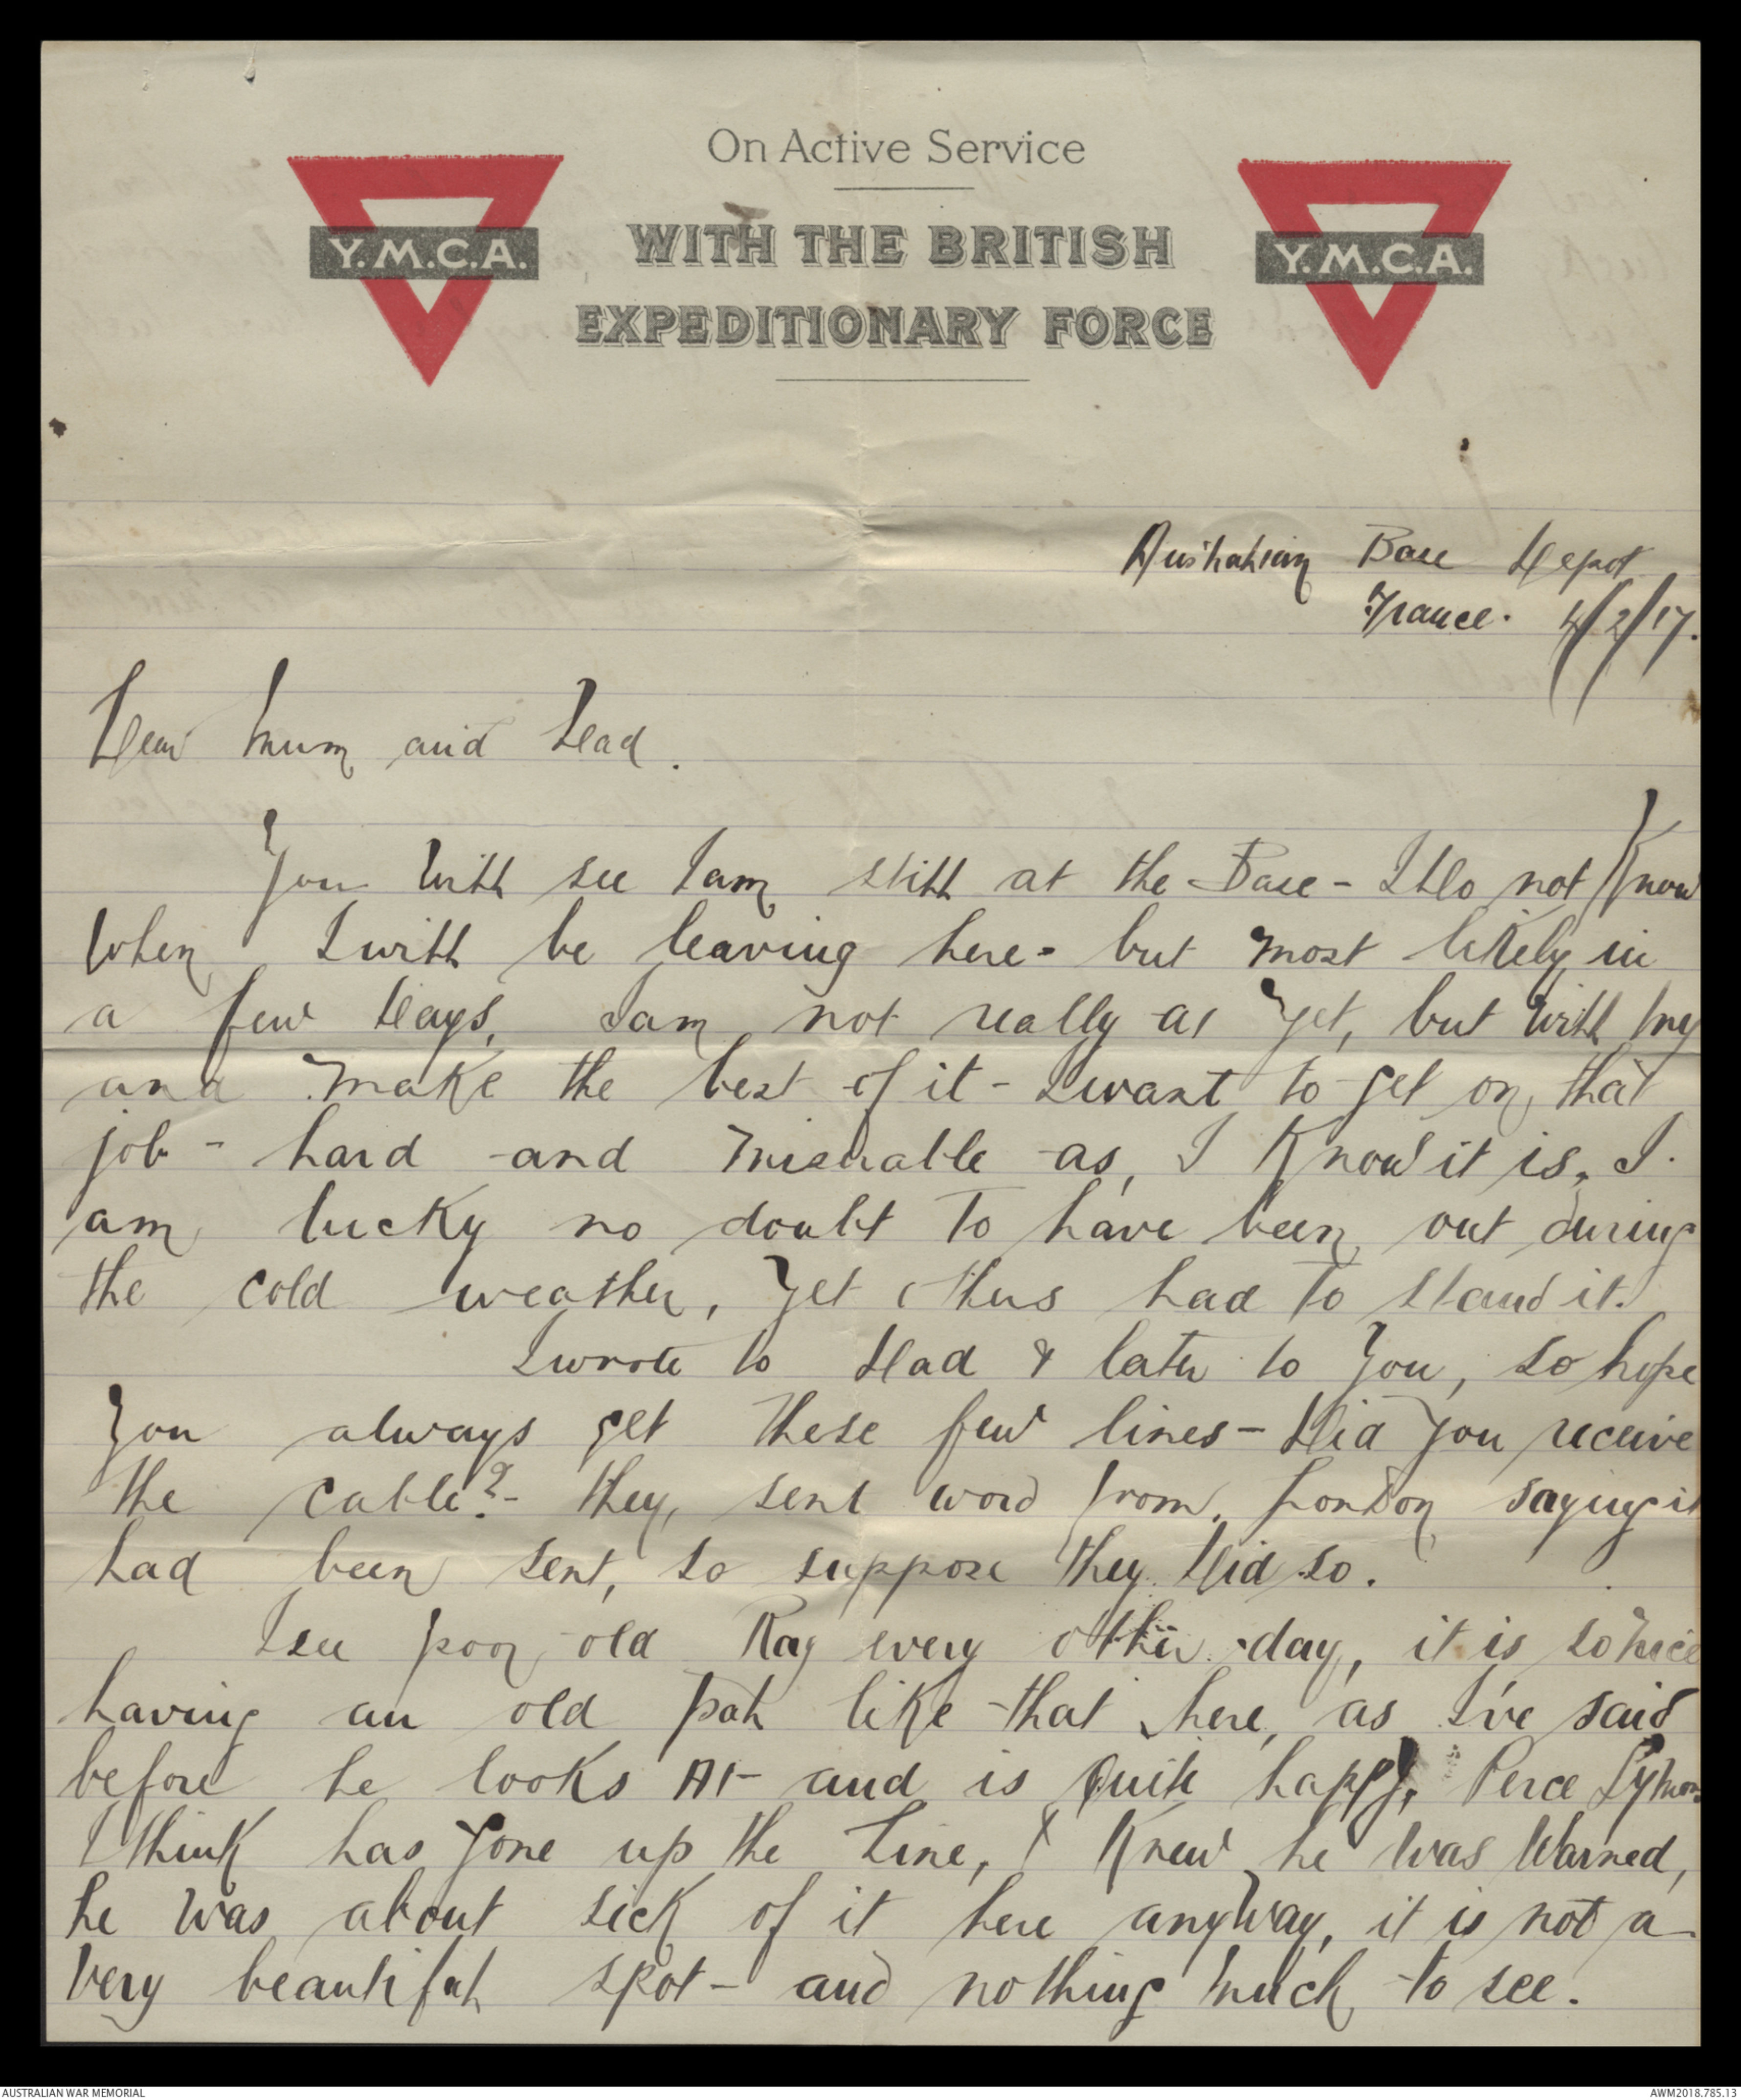 On Active Service
WITH THE BRITISH
EXPEDITIONARY FORCE
Y.M.C.A.
Y.M.C.A.
Australian Base Depot
France. 4/2/17.
Dear Mum and Dad.
You will see I am still at the Base - I do not Know
When I will be leaving here - but most likely in
a few days, I am not really as yet, but will try
and make the best of it - I want to get on that
job - hard and miserable as I Know it is. I
am lucky no doubt to have been out during
the cold weather, yet others had to stand it.
I wrote to Dad & later to you, so hope
you always get these few lines - Did you receive
the cable? - they sent word from London saying it
had been sent, so suppose they did so.
I see poor old Ray every other day, it is so nice
having an old pal like that here, as I've said
before he looks A1 - and is quite happy, Perce
I think has gone up the Line, I Knew he was Warned,
he was about sick of it here anyway, it is not a
very beautiful spot - and nothing much to see.
AUSTRALIAN WAR MEMORIAL
AWM2018.785.13